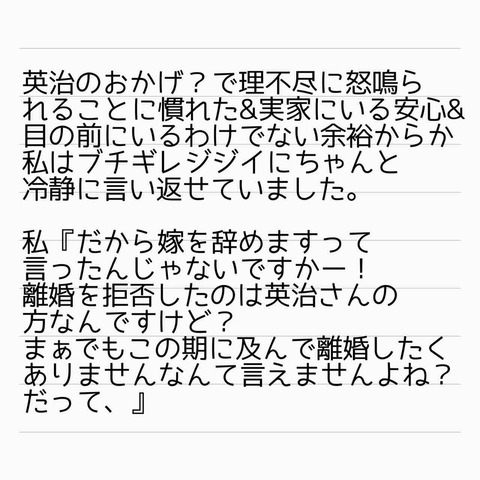 英治のおかげ？で理不尽に怒鳴ら
れることに慣れた&実家にいる安心&
目の前にいるわけでない余裕からか
私はブチギレジジイにちゃんと
冷静に言い返せていました。
私『だから嫁を辞めますって
言ったんじゃないですかー！
離婚を拒否したのは英治さんの
方なんですけど？
まぁでもこの期に及んで離婚したく
ありませんなんて言えませんよね？
だって、』